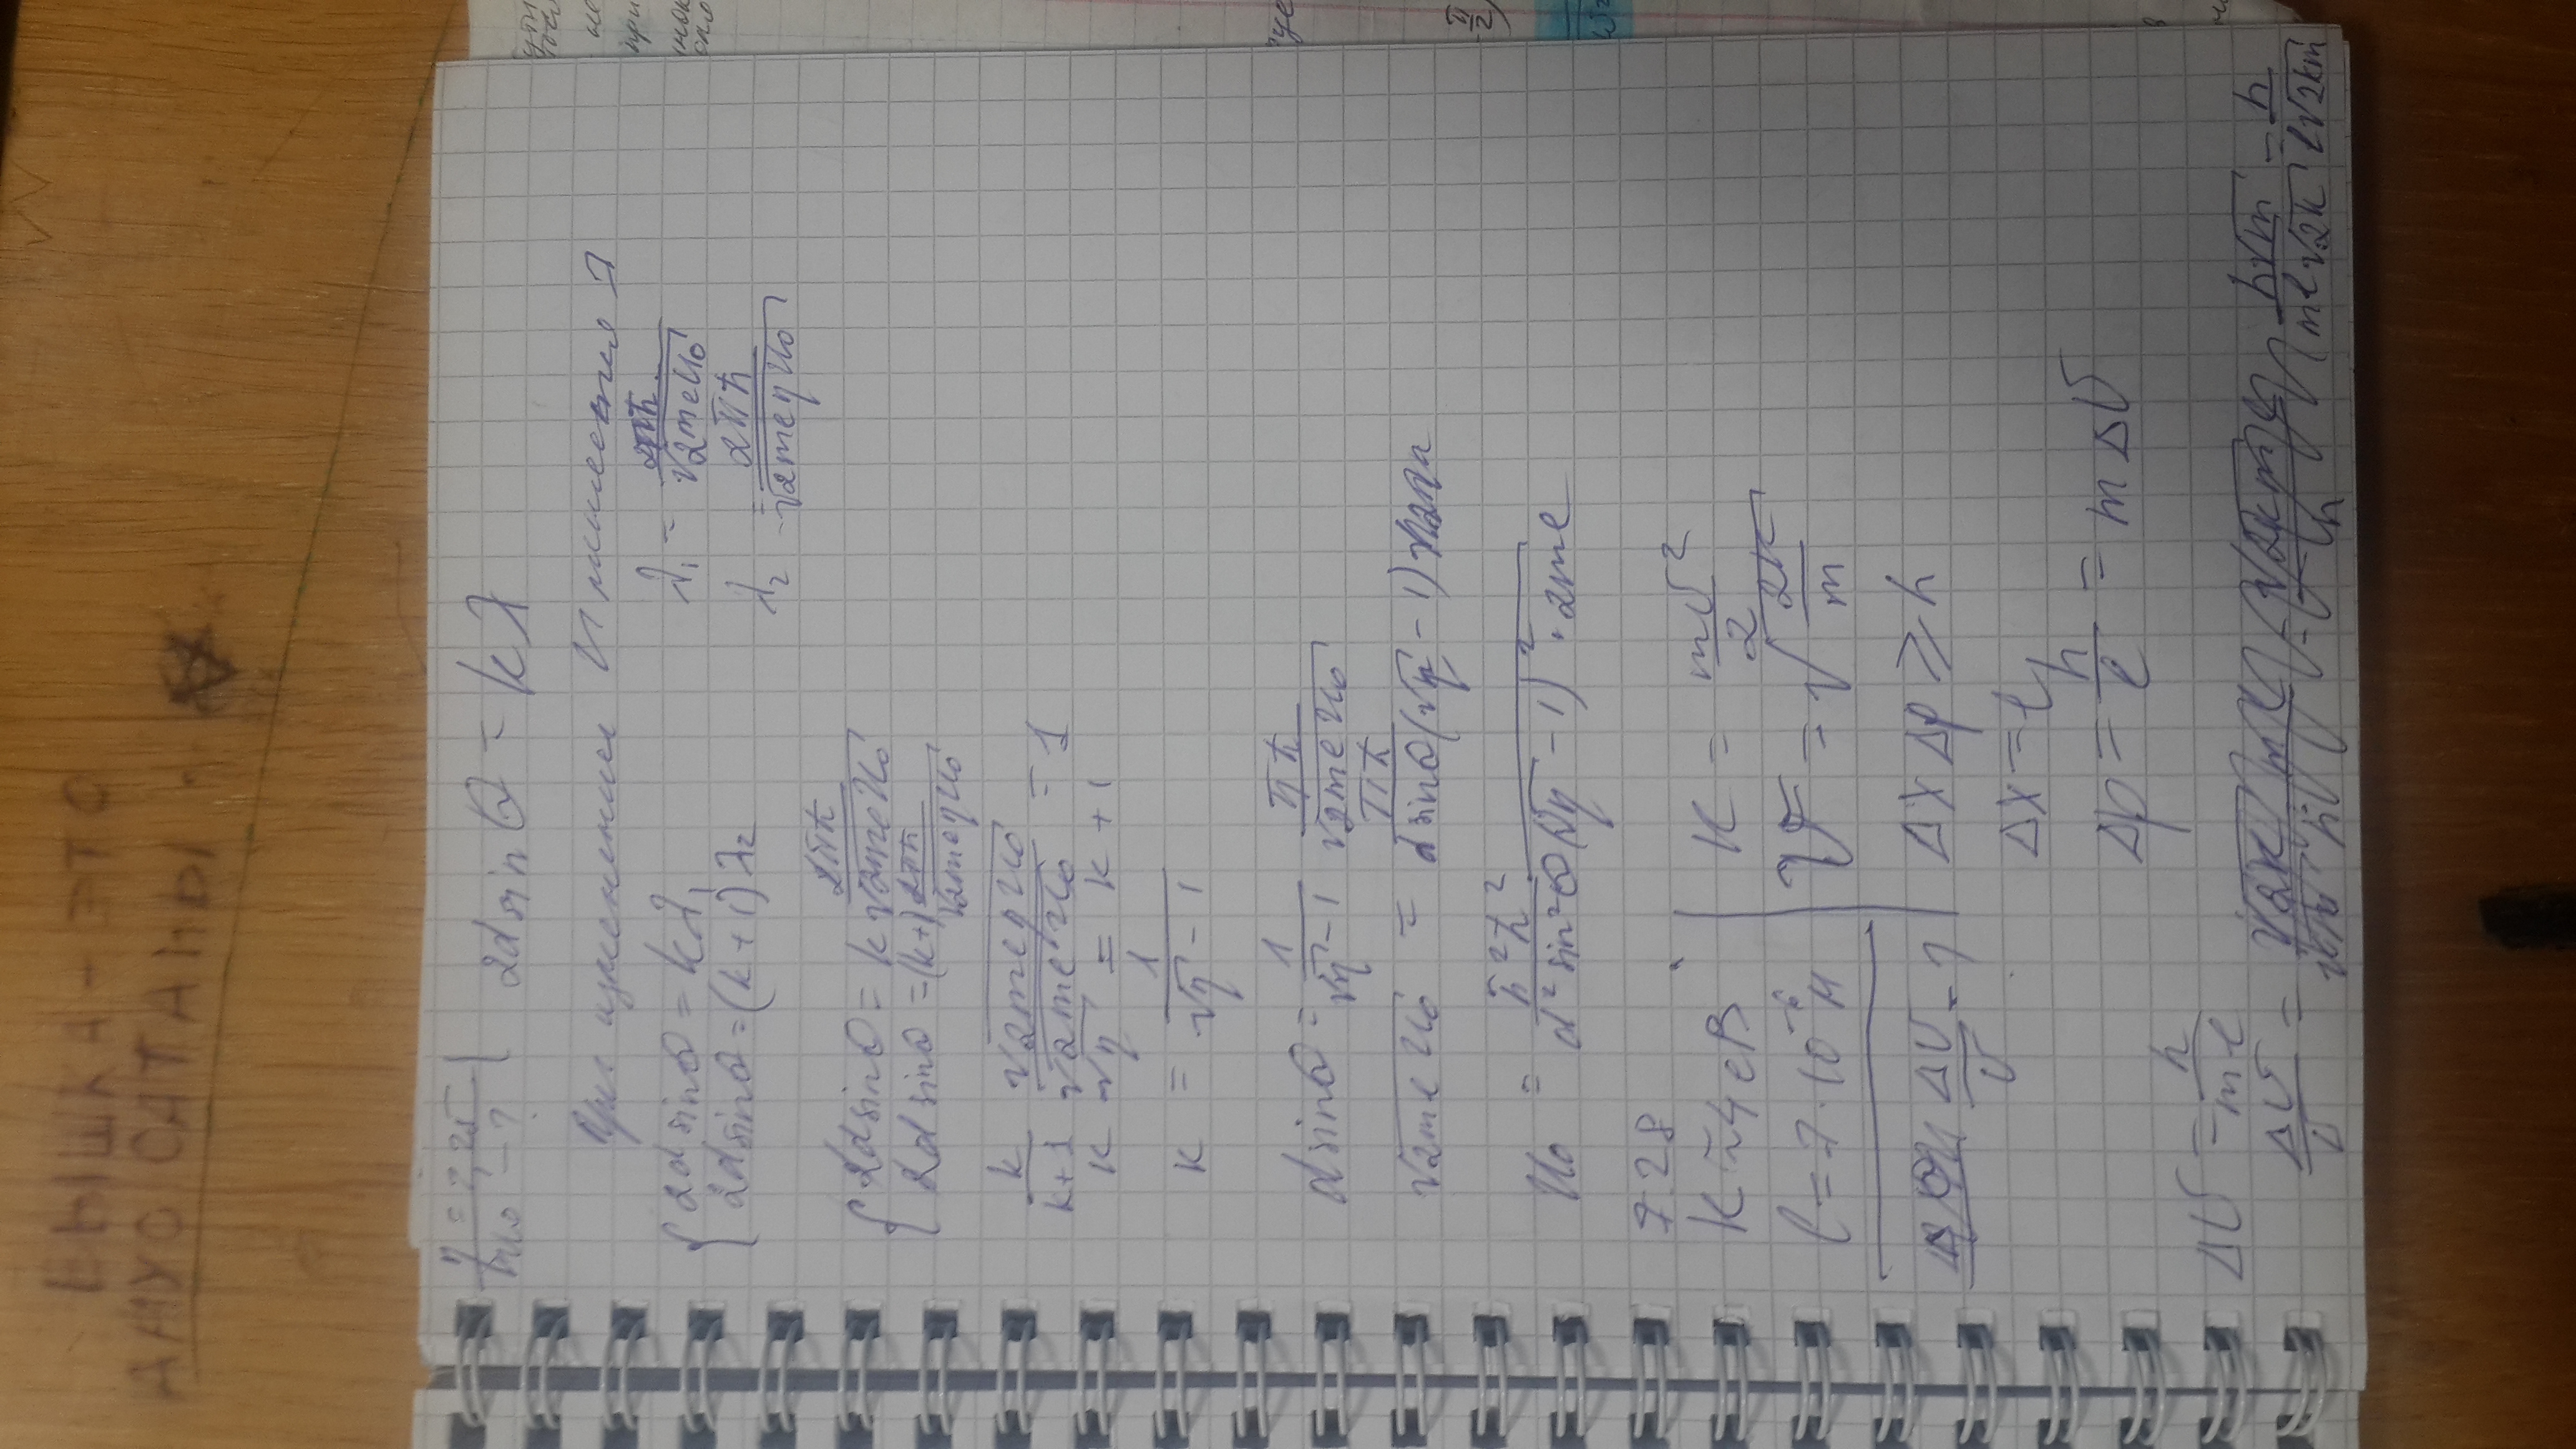 ВЫШКА - ЭТО
АНУС САТАНЫ
η = 2,25
U₀ - ?
2d sinθ = kλ
При изменении U меняется λ
2d sinθ = kλ₁
λ₁ = 2πħ/√(2meU₀)
2d sinθ = (k+1)λ₂
λ₂ = 2πħ/√(2meηU₀)
2d sinθ = k 2πħ/√(2meU₀)
2d sinθ = (k+1) 2πħ/√(2meηU₀)
k/(k+1) √(2meηU₀)/√(2meU₀) = 1
k √η = k + 1
k = 1/(√η - 1)
d sinθ = 1/(√η - 1) πħ/√(2meU₀)
√(2meU₀) = πħ/(d sinθ(√η - 1))
U₀ = π²ħ²/(d² sin²θ(√η - 1)² · 2me)
7.28
K ≈ 4 eB
l = 7·10⁻⁶ м
Δv/v - ?
K = mv²/2
v = √(2k/m)
Δx Δp ≥ h
Δx = l
Δp = h/l = mΔv
Δv = h/ml
Δv/v = h√m/(ml√2k) = h/(l√2km)